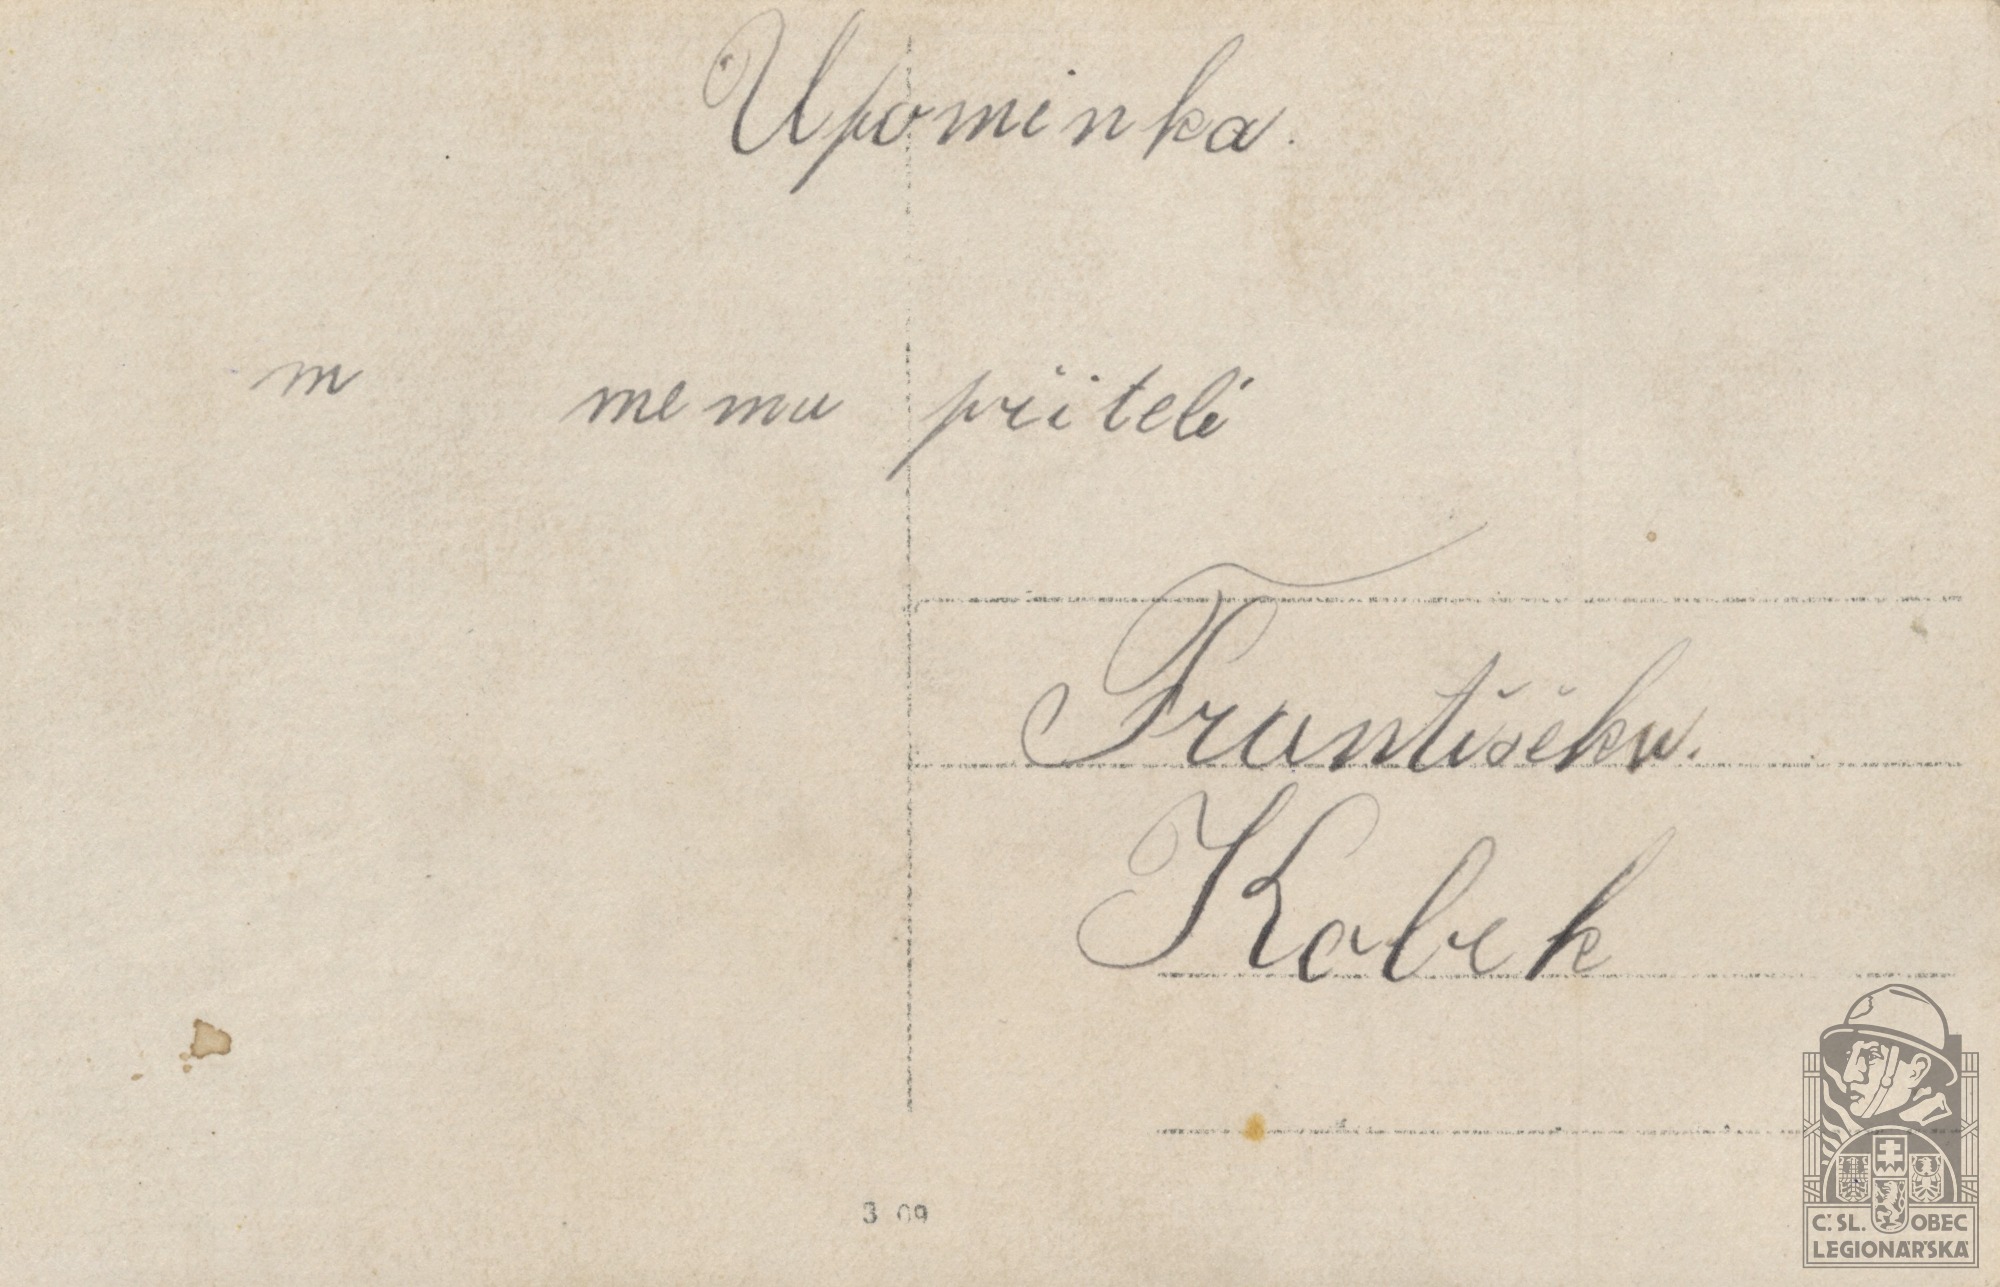 Upominka.
m memu přiteli
Františěku.
Kobek
3 09
Č.SL. OBEC
LEGIONÁŘSKÁ